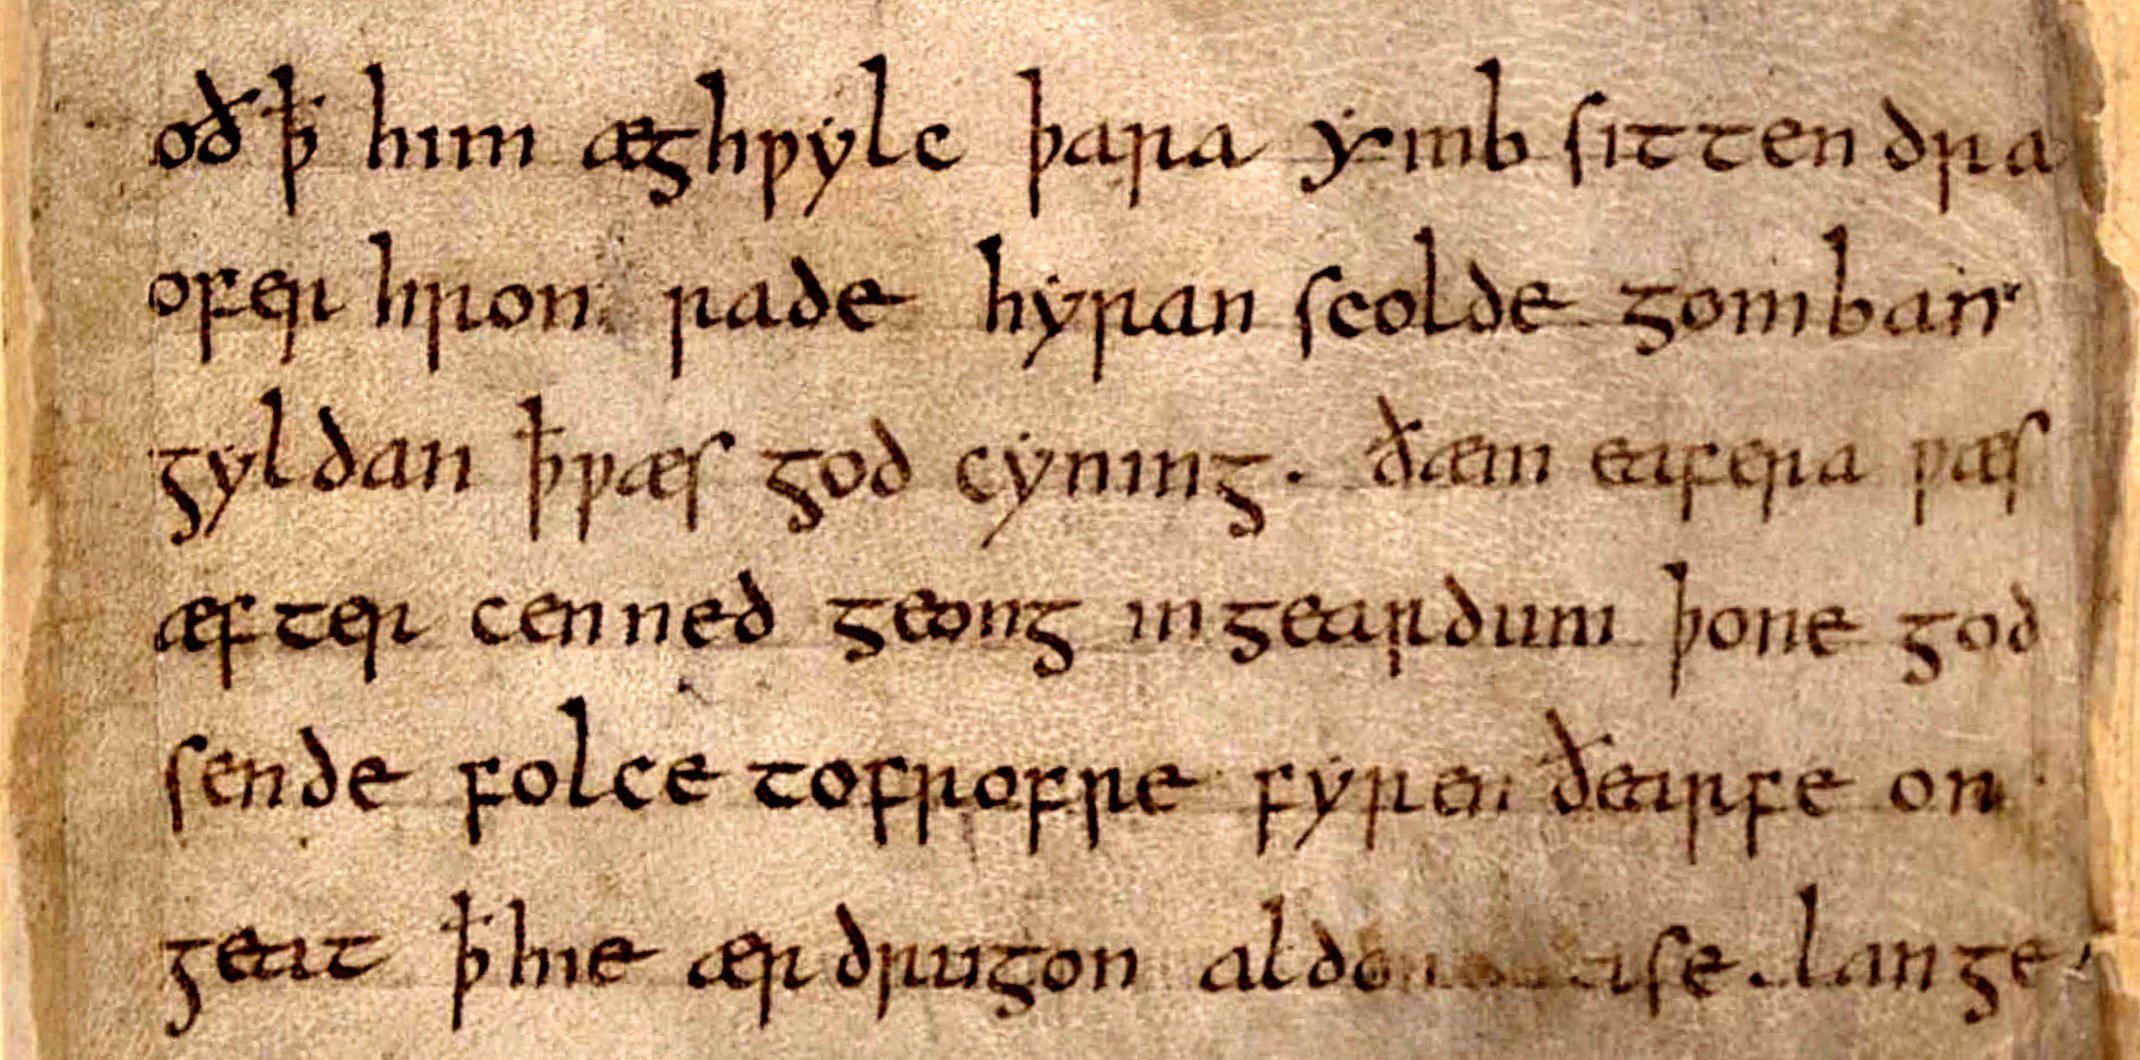 oð ꝥ him æghƿylc þara ymb sittendra
ofer hron rade hyran scolde gomban
gyldan ꝥ ƿæs god cyning. ðæm eafera ƿæs
æfter cenned geong in geardum þone god
sende folce tofrofre fyren ðearfe on
geat ꝥ hie ær drugon aldor ase. lange